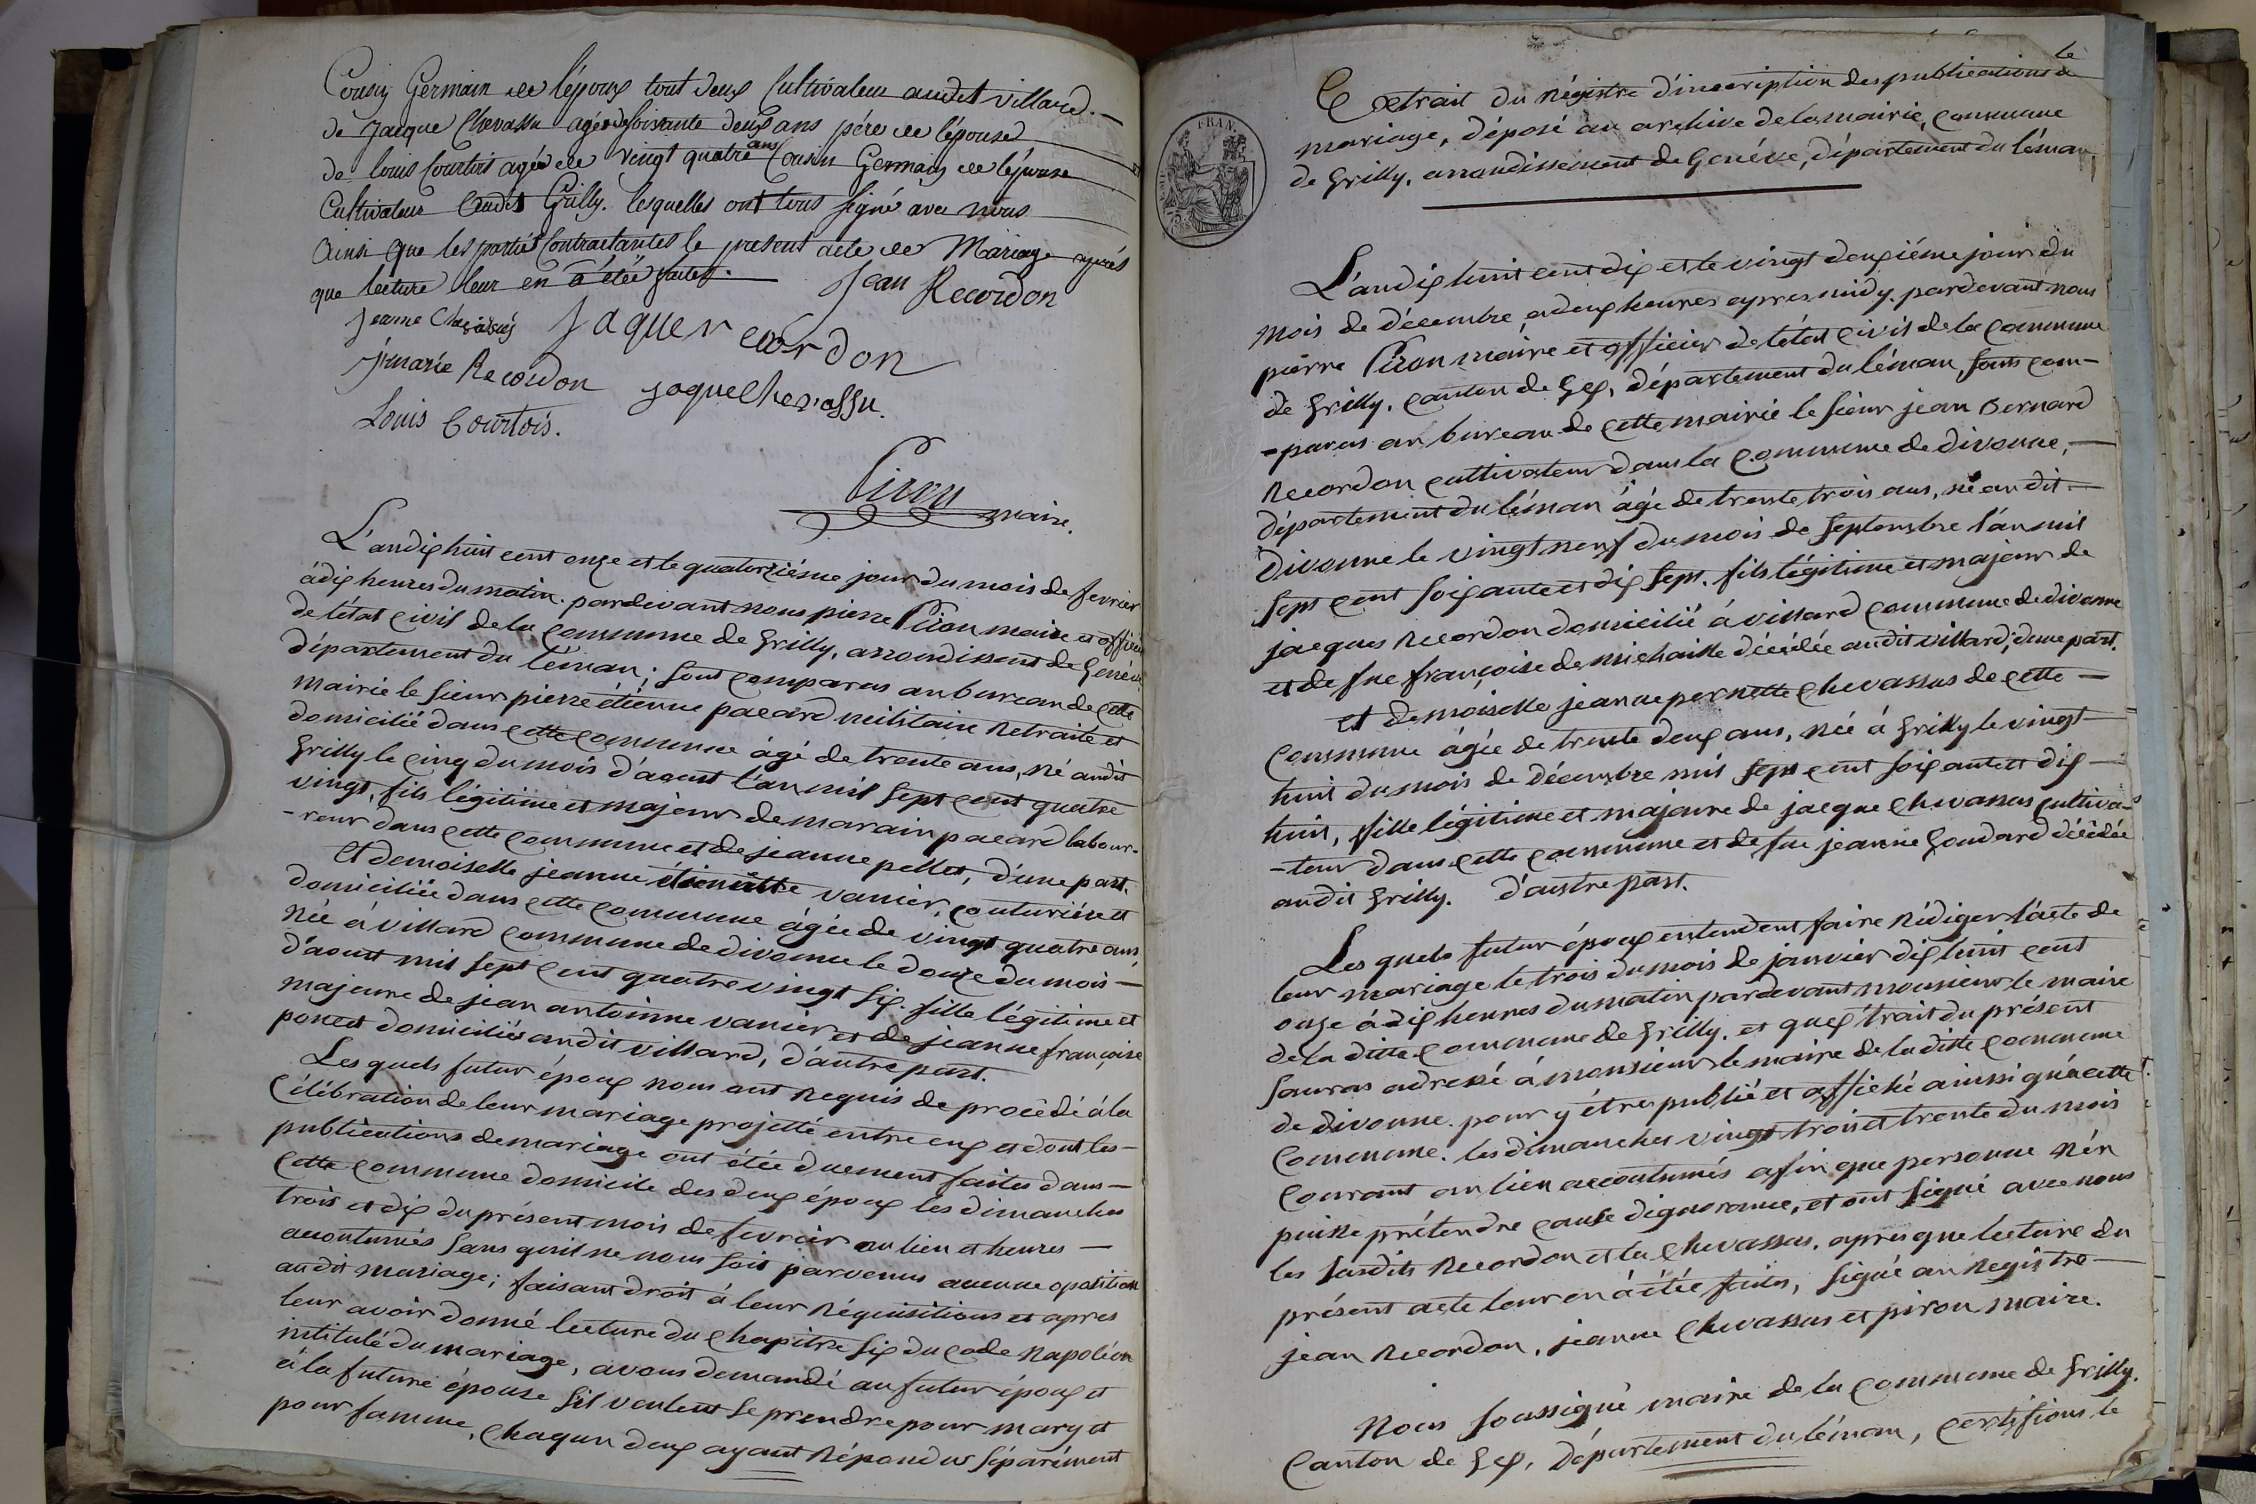 Cousin Germain de l'époux tout deux Cultivateur audit villard. —
de Jacque Chevassu agée de soixante deux ans père de l'épouse
de louis Courtois agée de vingt quatre ans Cousin Germain de l'épouse
Cultivateur audit Grilly. lesquelles ont tous signé avec nous
Ainsi que les partiés Contractantes le présent acte de Mariage après
que lecture leur en a étée faites. —
Jean Recordon
Jeanne
jaque recordon
jmarie Recordon
jaque Chevassu.
Louis Courtois.
Piron
maire.
L'an dix huit cent onze et le quatorziéme jour du mois de fevrier
à dix heures du matin. pardevant nous pierre Piron maire et officier
de l'état Civil de la Commune de Grilly, arrondissent de Genève
département du léman ; sont Comparus au bureau de cette
mairie le sieur pierre étienne pacard militaire Retraite et
domicilié dans cette Commune âgé de trente ans, né audit
Grilly le cinq du mois d'aoust l'an mil sept cent quatre
vingt, fils légitime et majeur de marain pacard labour-
-reur dans cette Commune et de jeanne pellet, d'une part.
et demoiselle jeanne étiennette vanier, couturière et
domiciliée dans cette Commune âgée de vingt quatre ans,
née à villard Commune de divonne le douze du mois —
d'aoust mil sept cent quatre vingt six. fille légitime et
majeure de jean antoinne vanier et de jeanne françoise
poncet domiciliés audit villard, d'autre part.
Les quels futur époux nous ont Requis de procédé à la
Célébration de leur mariage projetté entre eux et dont les —
publications de mariage ont étée duement faites dans —
cette Commune domicile des deux époux les dimanches
trois et dix du présent mois de fevrier au lieu et heures —
acoutumés sans qu'il ne nous soit parvenus aucune opotition
audit mariage ; faisant droit à leur Réquisitions et apres
leur avoir donné lecture du Chapitre six du Code Napoléon
intitulé du mariage, avons demandé au futur époux et
à la future épouse s'il veulent se prendre pour mary et
pour famme, Chaqun deux ayant Répondus séparément
Extrait du Régistre d'inscription des publications de
mariage, déposé au archive de la mairie, Commune
de Grilly, arrondissement de Genéve, département du léman,
L'an dix huit cent dix et le vingt deuxiéme jour du
mois de décembre, a deux heures apres midy. pardevant nous
pierre Piron maire et officier de l'état Civil de la Commune
de Grilly. Canton de Gex, département du léman, sont com-
-parus au bureau de cette mairie le sieur jean Bernard
Recordon cultivateur dans la Commune de divonne, —
département du léman âgé de trente trois ans, né audit —
divonne le vingt neuf du mois de septembre l'an mil
sept cent soixante et dix sept. fils légitime et majeur de
jacques Recordon domicilié à villard Commune de divonne
et de fue françoise de michaille décédée audit villard, dune part.
et demoiselle jeanne pernette Chevassus de cette —
Commune âgée de trente deux ans, née à Grilly le vingt
huit du mois de décembre mil sept cent soixante et dix —
huit, fille légitime et majeure de jacque Chevassus cultiva-
-teur dans cette Commune et de fue jeanne Goudard décédée
audit Grilly. d'autre part.
Les quels futur époux entendent faire Rédiger l'acte de
leur mariage le trois du mois de janvier dix huit cent
onze à dix heures du matin pardevant monsieur le maire
de la ditte Commune de Grilly. et quextrait du présent
sauras adressé à monsieur le maire de la ditte Commune
de divonne. pour y être publié et affiché ainssi qu'a cette
Commune. les dimanches vingt trois et trente du mois
Courant au lieu accoutumés afin que personne n'én
puisse prétendre cause dignorance, et ont signé avec nous
les susdits Recordon et la Chevassus. apres que lecture du
présent acte leur en à étée faites, signé au Registre —
jean Recordon, jeanne Chevassus et piron maire.
Nous soussigné maire de la Commune de Grilly.
Canton de Gex, département du léman, certifions le